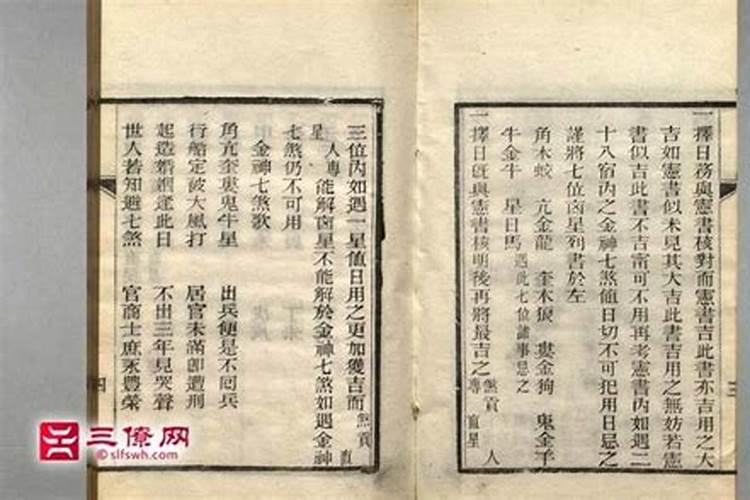 一擇日務與憲書核對而憲書吉此書亦吉用之大
吉如憲書似未見其大吉此書吉用之無妨若憲
書似吉此書不吉甯可不用再考憲書內如遇二
十八宿內之金神七煞值日切不可犯用日忌之
謹將七位凶星列書於左
角木蛟 亢金龍 奎木狼 婁金狗 鬼金羊
牛金牛 星日馬 遇此七位諸事忌之
一擇日旣與憲書核明後再將最吉之煞貢直星人專
三
三位內如遇一星值日用之更加獲吉而煞貢直
星人專能解凶星不能解於金神七煞如遇金神
七煞仍不可用
金神七煞歌
角亢奎婁鬼牛星 出兵便是不囘兵
行船定被大風打 居官未滿卽遭刑
起造婚姻逢此日 不出三年見哭聲
世人若知避七煞 官商士庶永豐榮
四
三僚网
©slfswh.com